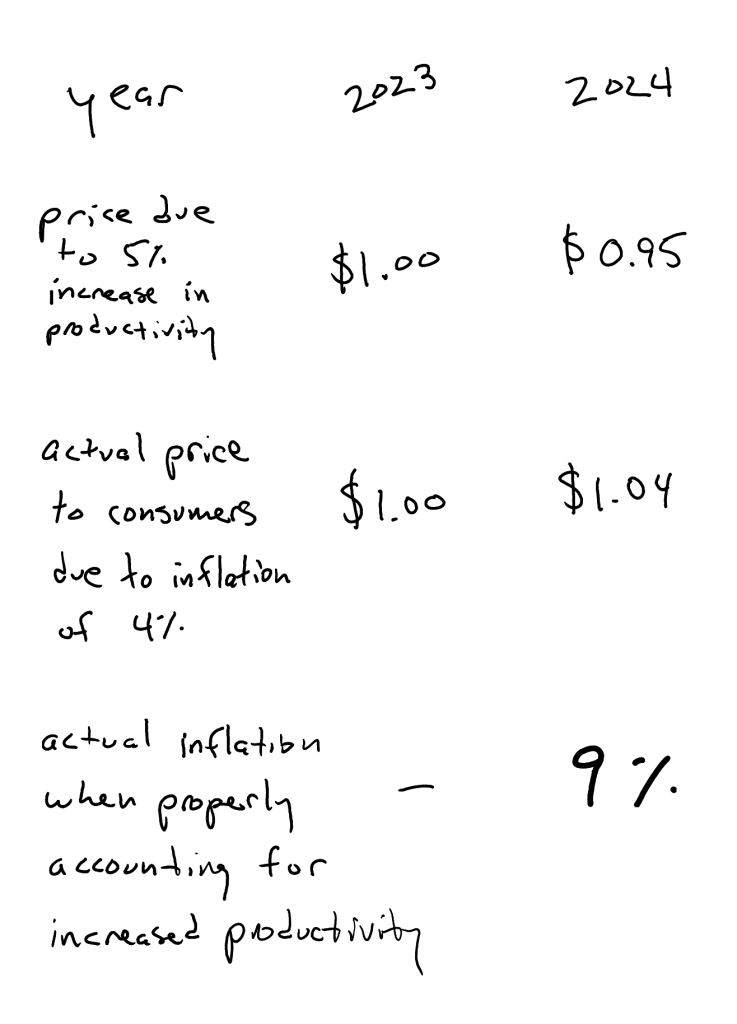 year 2023 2024
price due
to 5%
increase in
productivity
$1.00 $0.95
actual price
to consumers
due to inflation
of 4%
$1.00 $1.04
actual inflation
when properly
accounting for
increased productivity
– 9%